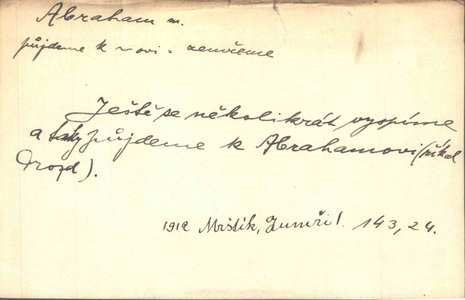 Abraham m.
půjdeme k ~ovi = zemřeme
Ještě se několikrát vyspíme
a taky půjdeme k Abrahamovi (říkal
Drozd).
1912 Mrštík, Zumři 1. 143, 24.